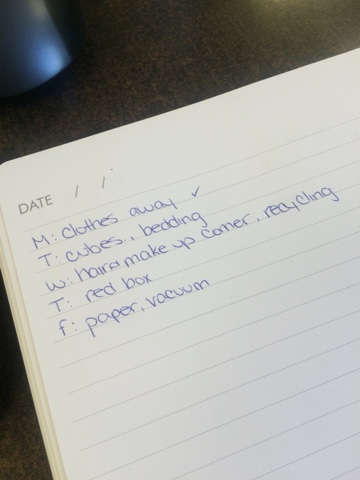 DATE / /
M: clothes away ✓
T: cubes, bedding
W: hair & make up corner, recycling
T: red box
f: paper, vacuum